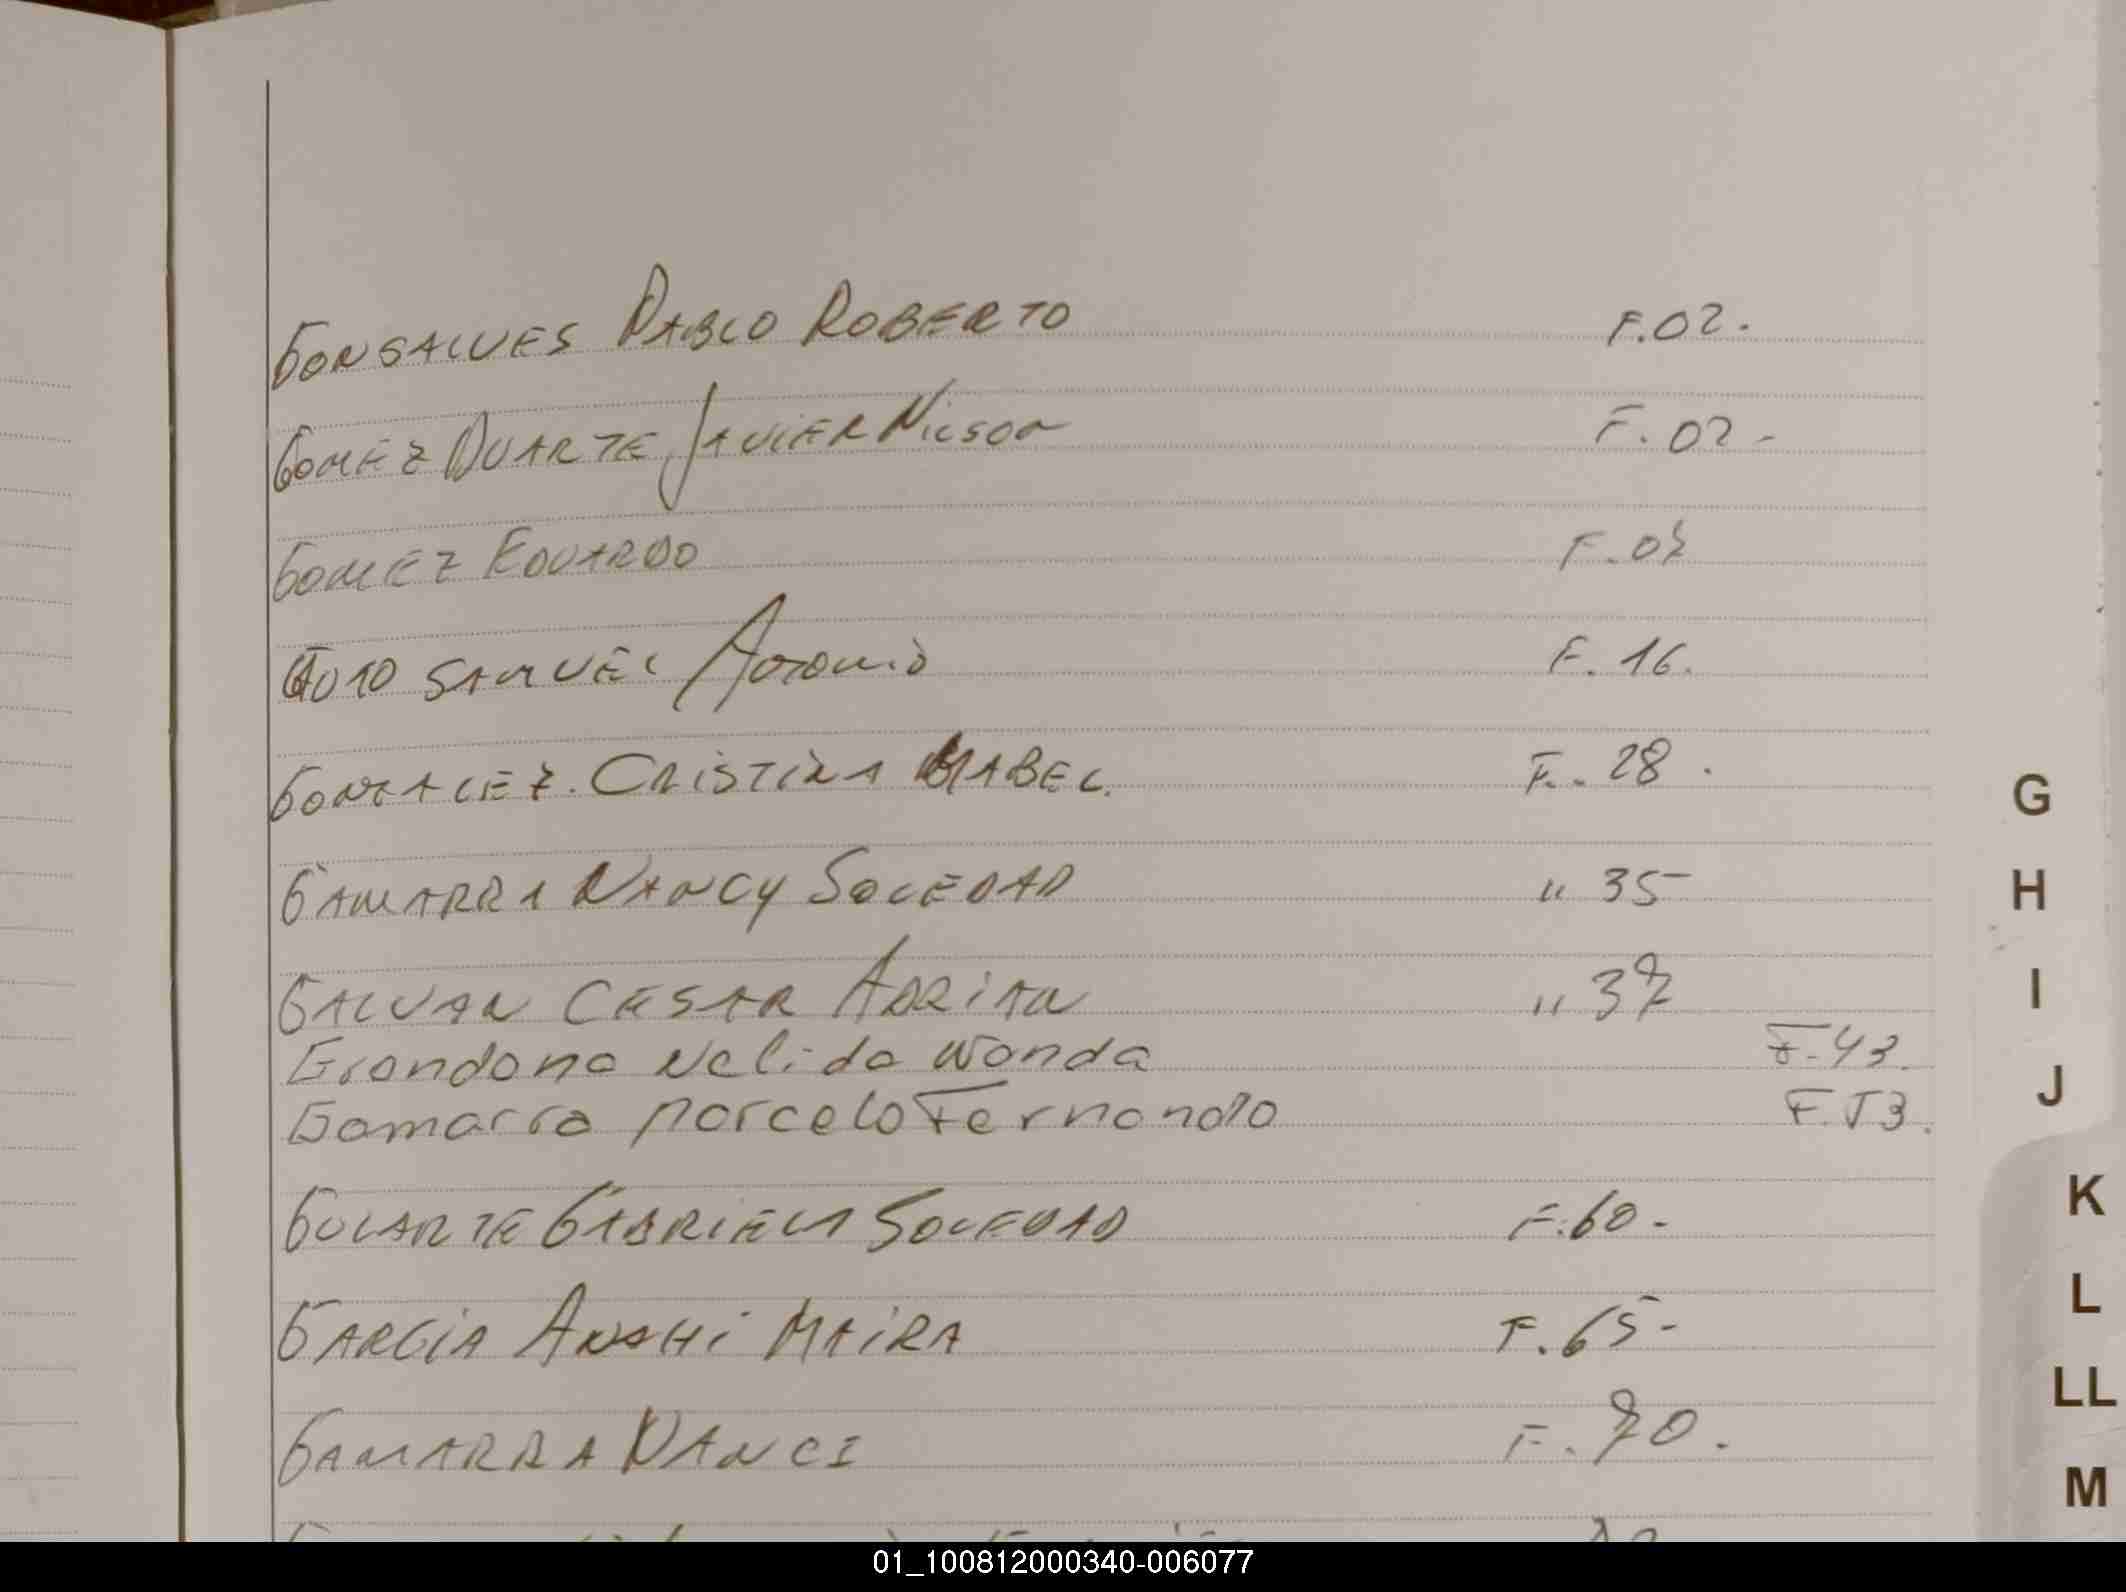 GONSALVES PABLO ROBERTO F.02.
GOMEZ DUARTE JAVIER NILSON F.02-
GOMEZ EDUARDO F.02
SAMUEL ANTONIO F.16.
GONZALEZ. CRISTINA MABEL. F.. 28.
GAMARRA NANCY SOLEDAD " 35-
GALVAN CESAR ADRIAN " 37
Grondona Nelida Wanda F.43.
Gamarra Marcelo Fernando F.53.
GULARTE GABRIELA SOLEDAD F.60-
GARCIA ANAHI MAIRA F.65-
GAMARRA NANCI F.70.
G
H
I
J
K
L
LL
M
01_100812000340-006077